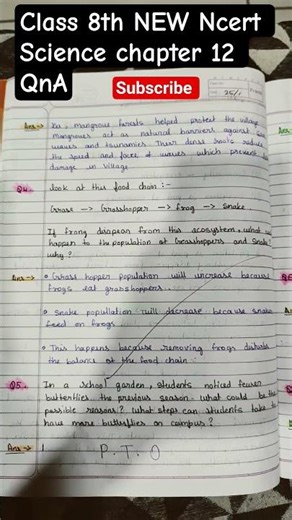 Class 8th NEW Ncert
Science chapter 12
QnA
Subscribe
25/1
Ans → Yes, mangrove forests helped protect the village
mangroves act as natural barriers against
waves and tsunamis. Their dense roots reduce
the speed and force of waves which prevent
damage in village
Q4. look at this food chain :-
Grass → Grasshopper → frog → Snake
If frong disapear from this ecosystem, what
happen to the population of Grasshoppers and Snake
why ?
Ans → • Grass hopper population will increase because
frogs eat grasshoppers.
• Snake population will decrease because snake
feed on frogs
• This happens because removing frogs disturb
the balance of the food chain.
Q5. In a school garden, students noticed fewer
butterflies the previous season. what could be the
possible reasons ? what steps can students take to
have more butterflies on campus ?
Ans →
P.T.O